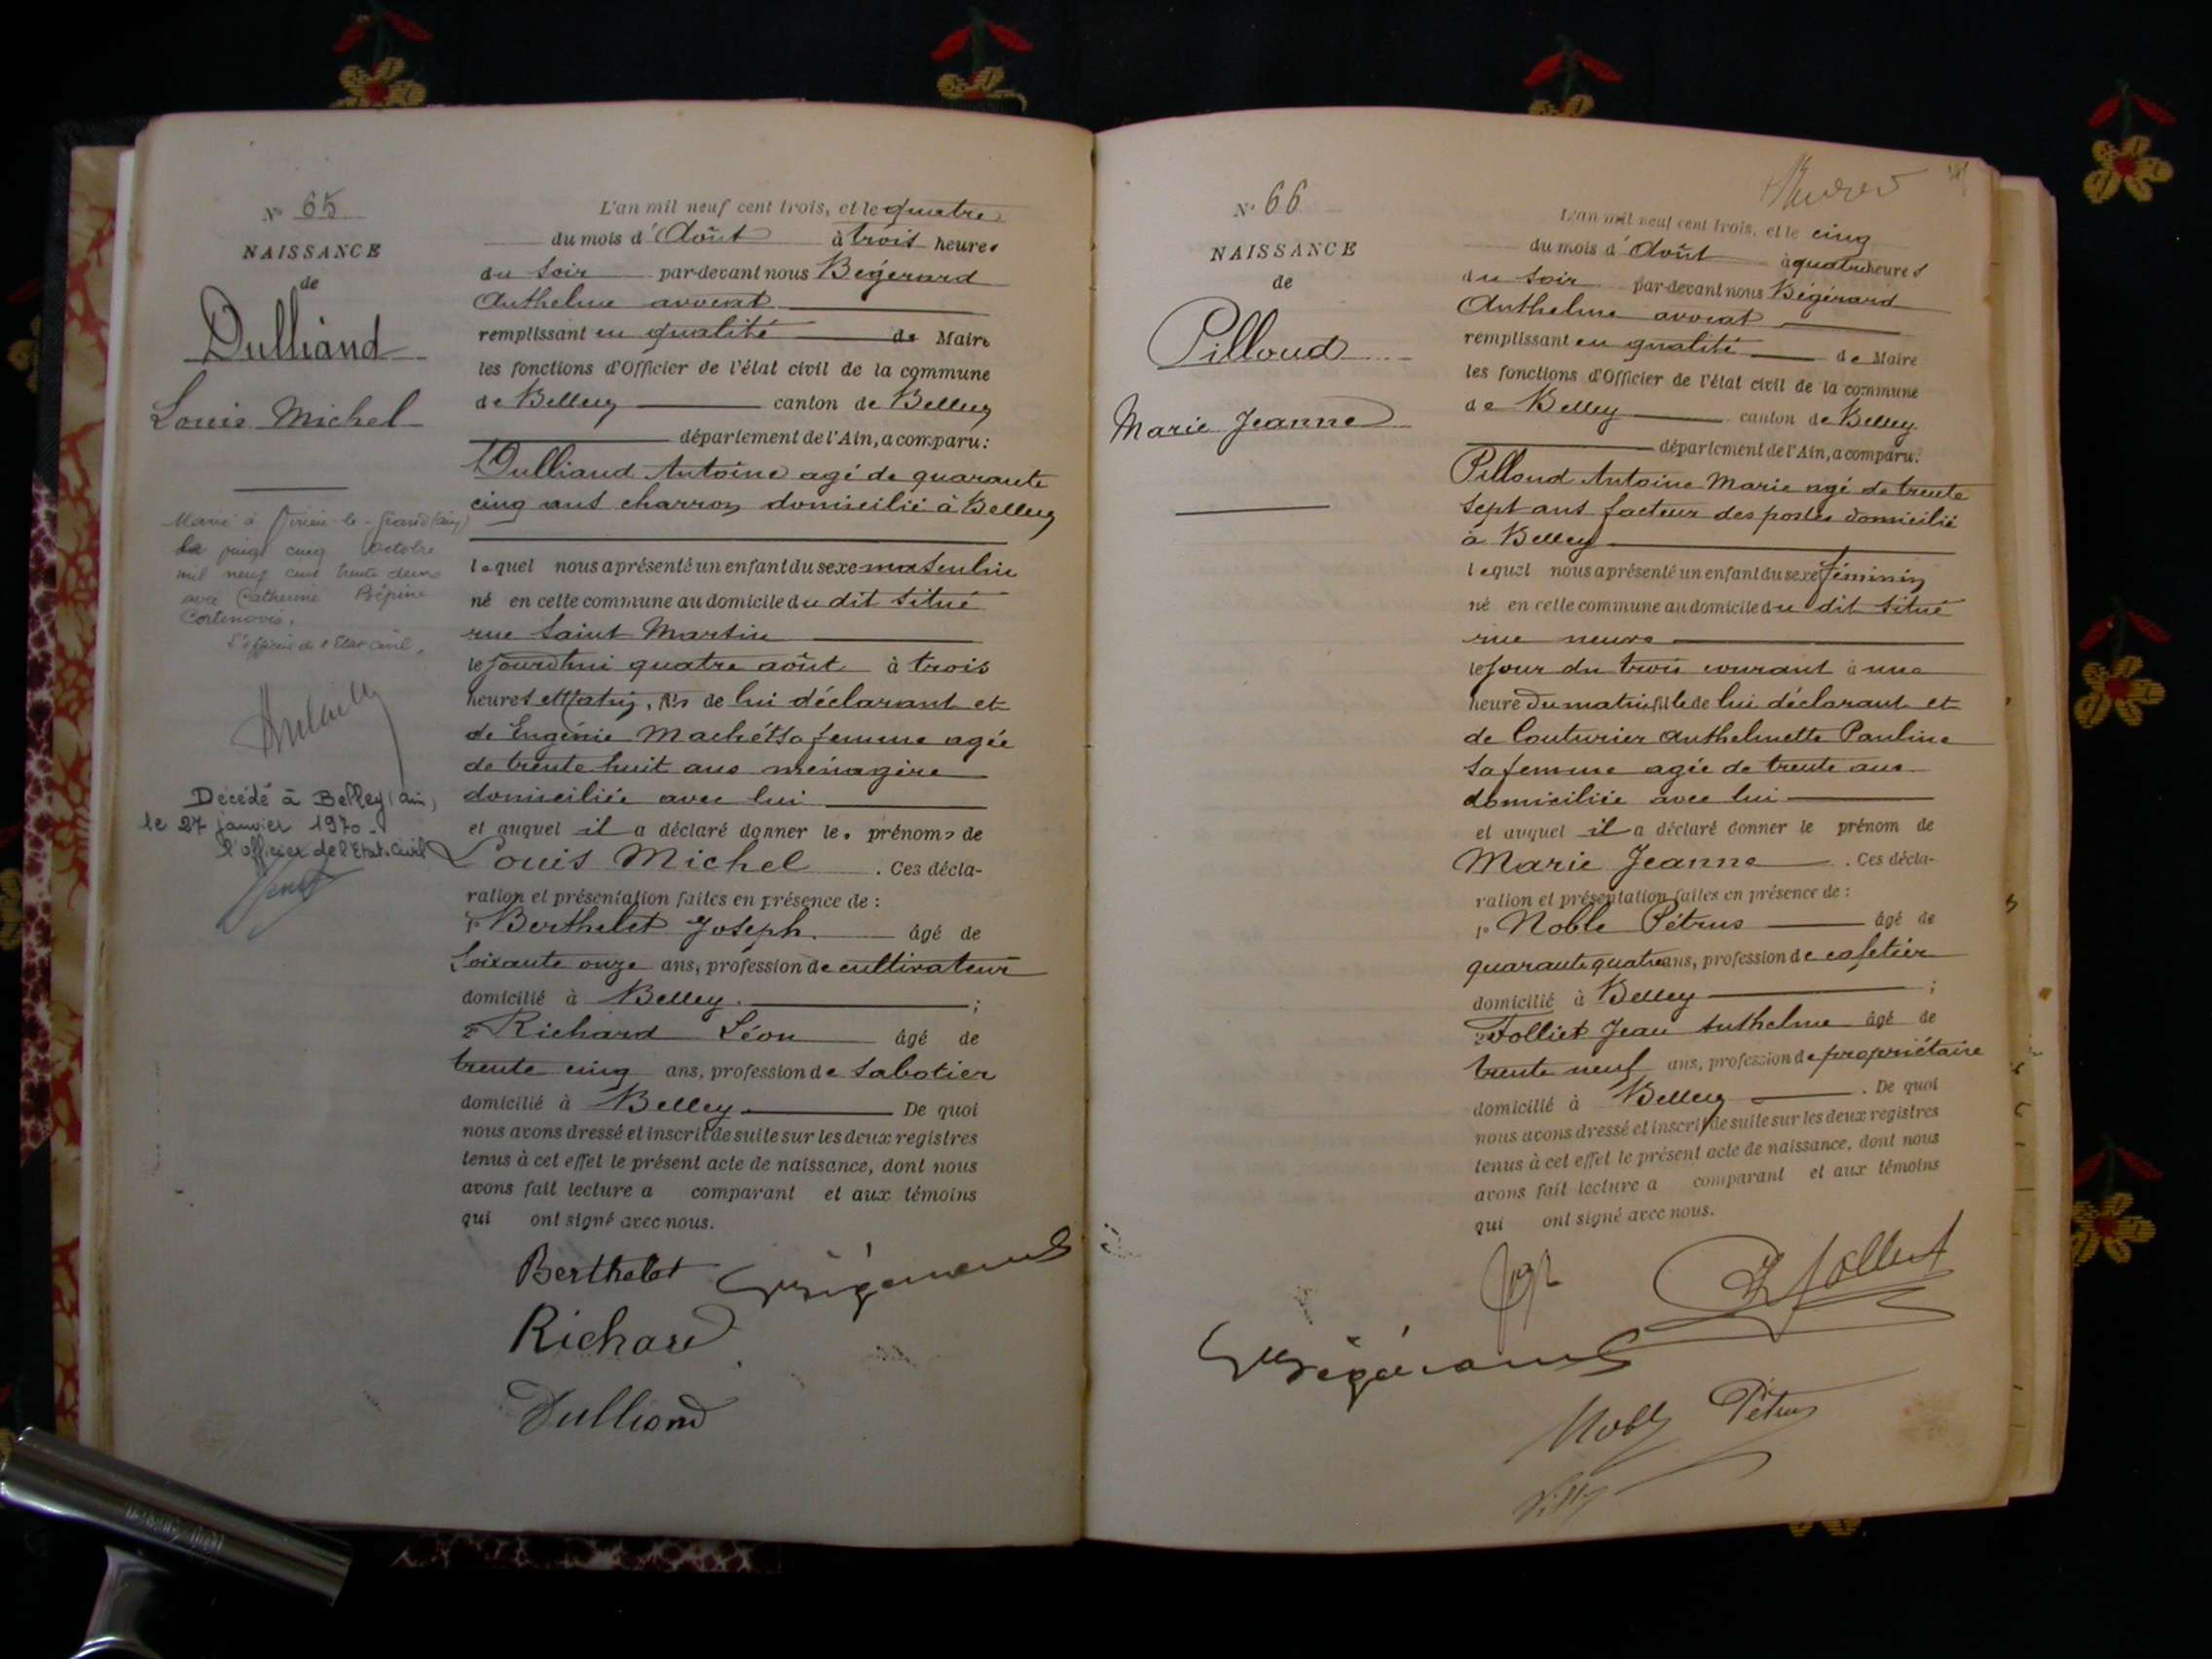 N° 65
NAISSANCE
de
Dulliand
Louis Michel
Marié à Virieu-le-Grand (Ain)
le vingt cinq octobre
mil neuf cent trente deux
avec Catherine Pépine
Cortinovis.
L'officier de l'Etat civil,
Décédé à Belley (Ain)
le 27 janvier 1970.
l'officier de l'Etat-Civil
L'an mil neuf cent trois, et le quatre
du mois d'Août à trois heures
du soir par-devant nous Bégérard
Anthelme avocat
remplissant en qualité de Maire
les fonctions d'Officier de l'état civil de la commune
de Belley canton de Belley
département de l'Ain, a comparu:
Dulliand Antoine agé de quarante
cinq ans charron domicilié à Belley
lequel nous a présenté un enfant du sexe masculin
né en cette commune au domicile du dit situé
rue Saint Martin
le jourd'hui quatre août à trois
heures Matin, fils de lui déclarant et
de Eugénie sa femme agée
de trente huit ans ménagère
domiciliée avec lui
et auquel il a déclaré donner les prénoms de
Louis Michel . Ces décla-
ration et présentation faites en présence de :
1° Berthelet Joseph âgé de
Soixante onze ans, profession de cultivateur
domicilié à Belley. ;
2° Richard Léon âgé de
trente cinq ans, profession de sabotier
domicilié à Belley. De quoi
nous avons dressé et inscrit de suite sur les deux registres
tenus à cet effet le présent acte de naissance, dont nous
avons fait lecture a comparant et aux témoins
qui ont signé avec nous.
Berthelet
Richard
Dulliand
N° 66
NAISSANCE
de
Pilloud
Marie Jeanne
L'an mil neuf cent trois, et le cinq
du mois d'Août à quatre heures
du soir par-devant nous Bégérard
Anthelme avocat
remplissant en qualité de Maire
les fonctions d'Officier de l'état civil de la commune
de Belley canton de Belley
département de l'Ain, a comparu:
Pilloud Antoine Marie agé de trente
sept ans facteur des postes domicilié
à Belley
lequel nous a présenté un enfant du sexe féminin
né en cette commune au domicile du dit situé
rue neuve
le jour du trois courant à une
heure du matin fille de lui déclarant et
de Couturier Anthelmette Pauline
sa femme agée de trente ans
domiciliée avec lui
et auquel il a déclaré donner le prénom de
Marie Jeanne . Ces décla-
ration et présentation faites en présence de :
1° Noble Pétrus âgé de
quarante quatre ans, profession de cafetier
domicilié à Belley ;
2° Folliet Jean Anthelme âgé de
trente neuf ans, profession de propriétaire
domicilié à Belley . De quoi
nous avons dressé et inscrit de suite sur les deux registres
tenus à cet effet le présent acte de naissance, dont nous
avons fait lecture a comparant et aux témoins
qui ont signé avec nous.
Folliet
Noble Pétrus